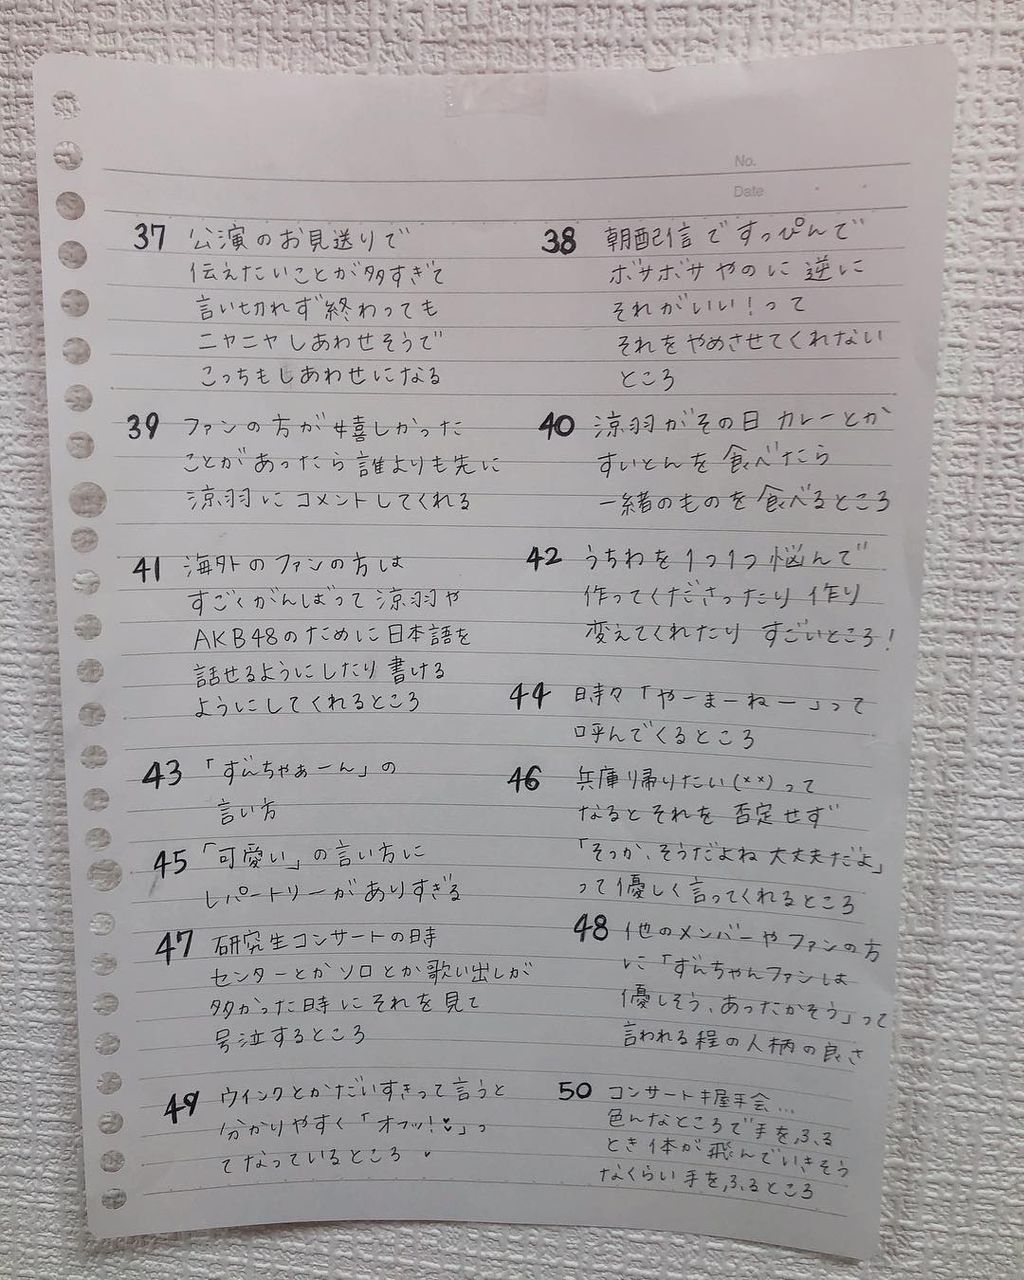 No.
Date
37 公演のお見送りで
伝えたいことが多すぎて
言い切れず終わっても
ニヤニヤしあわせそうで
こっちもしあわせになる
38 朝配信ですっぴんで
ボサボサやのに逆に
それがいい!って
それをやめさせてくれない
ところ
39 ファンの方が嬉しかった
ことがあったら誰よりも先に
涼羽にコメントしてくれる
40 涼羽がその日カレーとか
すいとんを食べたら
一緒のものを食べるところ
41 海外のファンの方は
すごくがんばって涼羽や
AKB48のために日本語を
話せるようにしたり書ける
ようにしてくれるところ
42 うちわを1つ1つ悩んで
作ってくださったり作り
変えてくれたりすごいところ!
43 「ずんちゃぁーん」の
言い方
44 時々「やーまーねー」って
呼んでくるところ
45 「可愛い」の言い方に
レパートリーがありすぎる
46 兵庫帰りたい(××)って
なるとそれを否定せず
「そっか、そうだよね大丈夫だよ」
って優しく言ってくれるところ
47 研究生コンサートの時
センターとかソロとか歌い出しが
多かった時にそれを見て
号泣するところ
48 他のメンバーやファンの方
に「ずんちゃんファンは
優しそう、あったかそう」って
言われる程の人柄の良さ
49 ウインクとかだいすきって言うと
分かりやすく「オフッ!♥」っ
てなっているところ
50 コンサート握手会...
色んなところで手をふる
とき体が飛んでいきそう
なくらい手をふるところ